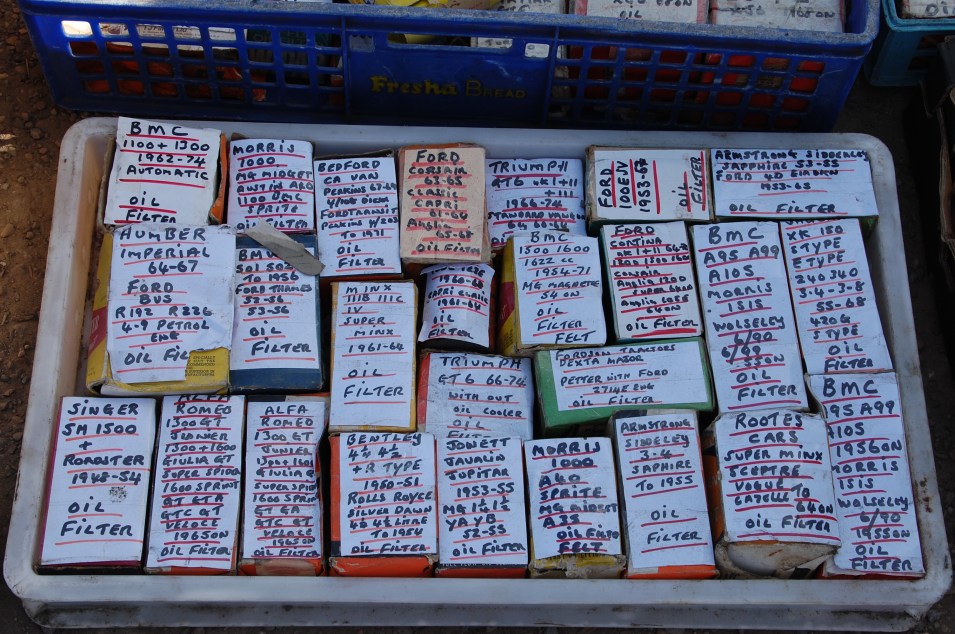 OIL
Fresha Bread
BMC
1100 + 1300
1962-74
AUTOMATIC
OIL
FILTER
MORRIS
1000
MG MIDGET
AUSTIN A40
SPRITE
OIL FILTER
BEDFORD
CA VAN
PERKINS
FORD TRANSIT
PERKINS
TO 1971
OIL
FILTER
FORD
CORSAIR
63-65
CLASSIC
CAPRI
61-60
ANGLIA
OIL FILTER
TRIUMPH
GT6 MK 1 + 11
+ 111
1966-74
STANDARD
FORD
100E JV
1953-67
OIL
FILTER
ARMSTRONG SIDDERLEY
SAPPHIRE 53-55
FORD 4D
1953-65
OIL FILTER
HUMBER
IMPERIAL
64-67
FORD
BUS
R192 R226
4-9 PETROL
ENG
OIL
BMC
TO 1956
FORD THAMES
53-56
OIL
FILTER
MINX
111B 111C
IV
SUPER
MINX
1961-64
OIL
FILTER
CAPRI CLASSIC
1961-64
OIL
FILTER
BMC
1500 1600
1622 CC
1954-71
MG MAGNETE
54 ON
OIL
FILTER
FELT
FORD
CORTINA
MK 1 + 11
1300 1500 1600
CORSAIR
ANGLIA 1200
SUPER
64 ON
OIL
FILTER
BMC
A95 A99
A105
MORRIS
ISIS
WOLSELEY
6/90
6/99
OIL
FILTER
XK 150
E TYPE
E TYPE
240 340
3-4-3-8
55-68
420G
S TYPE
OIL
FILTER
TRIUMPH
GT 6 66-74
WITH OUT
OIL COOLER
OIL FILTER
FORDSON TRACTORS
DEXTA MAJOR
PETTER WITH FORD
2714E ENG
OIL FILTER
SINGER
SM 1500
+
ROADSTER
1948-54
OIL
FILTER
ALFA
ROMEO
1300 GT
JUNIOR
1300 + 1600
GIULIA GT
SUPER SPIDER
1600 SPRINT
GT GTA
GTC GT
VELOCE
1965 ON
OIL FILTER
ALFA
ROMEO
1300 GT
JUNIOR
1300 + 1600
GIULIA GT
SUPER SPIDER
1600 SPRINT
GT GA
GTC GT
VELOCE
1965 ON
OIL FILTER
BENTLEY
4¼ 4½
+ R TYPE
1950-51
ROLLS ROYCE
SILVER DAWN
4¼ 4½ LITRE
TO 1954
OIL FILTER
JOWETT
JAVALIN
JUPITAR
1953-55
MG 1¼ 1½
YA YB
52-55
OIL FILTER
MORRIS
1000
A40
SPRITE
MG MIDGET
A35
OIL FILTER
FELT
ARMSTRONG
SIDDELEY
3-4
SAPHIRE
TO 1955
OIL
FILTER
ROOTES
CARS
SUPER MINX
SCEPTRE
VOGUE TO
GAZELLE
64 ON
OIL FILTER
BMC
A95 A99
A105
1956 ON
MORRIS
ISIS
WOLSELEY
6/90
1955 ON
OIL
FILTER